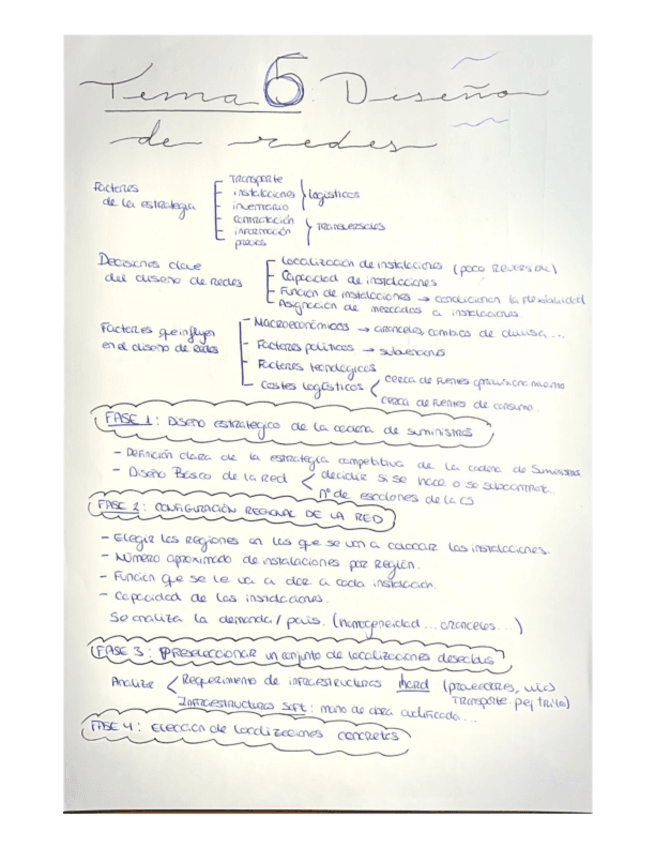 Tema 5: Diseño
de redes
Factores
de la estrategia
Transporte
instalaciones
inventario
logísticos
contratación
información
precios
Transversales
Decisiones clave
del diseño de redes
Localización de instalaciones (poco reversible)
Capacidad de instalaciones
Función de instalaciones → condicionan la flexibilidad
Asignación de mercados a instalaciones
Factores que influyen
en el diseño de Redes
Macroeconómicos → aranceles cambios de divisa, ...
Factores políticos → subvenciones
Factores tecnológicos
Costes logísticos
cerca de Fuentes aprovisionamiento
cerca de Fuentes de consumo.
FASE 1: Diseño estratégico de la cadena de suministros
- Definición clara de la estrategia competitiva de la cadena de Suministros.
- Diseño Básico de la red
decidir si se hace o se subcontrata.
nº de escalones de la CS
FASE 2: CONFIGURACIÓN REGIONAL DE LA RED
- Elegir las Regiones en las que se van a colocar las instalaciones.
- Número aproximado de instalaciones por Región.
- Función que se le va a dar a cada instalación.
- Capacidad de las instalaciones.
Se analiza la demanda / país. (homogeneidad ... aranceles ...)
FASE 3: PReseleccionar un conjunto de localizaciones deseables
Analizar
Requerimiento de infraestructuras hard (proveedores,
Transporte.
Infraestructuras Soft: mano de obra cualificada...
FASE 4: Elección de localizaciones concretas